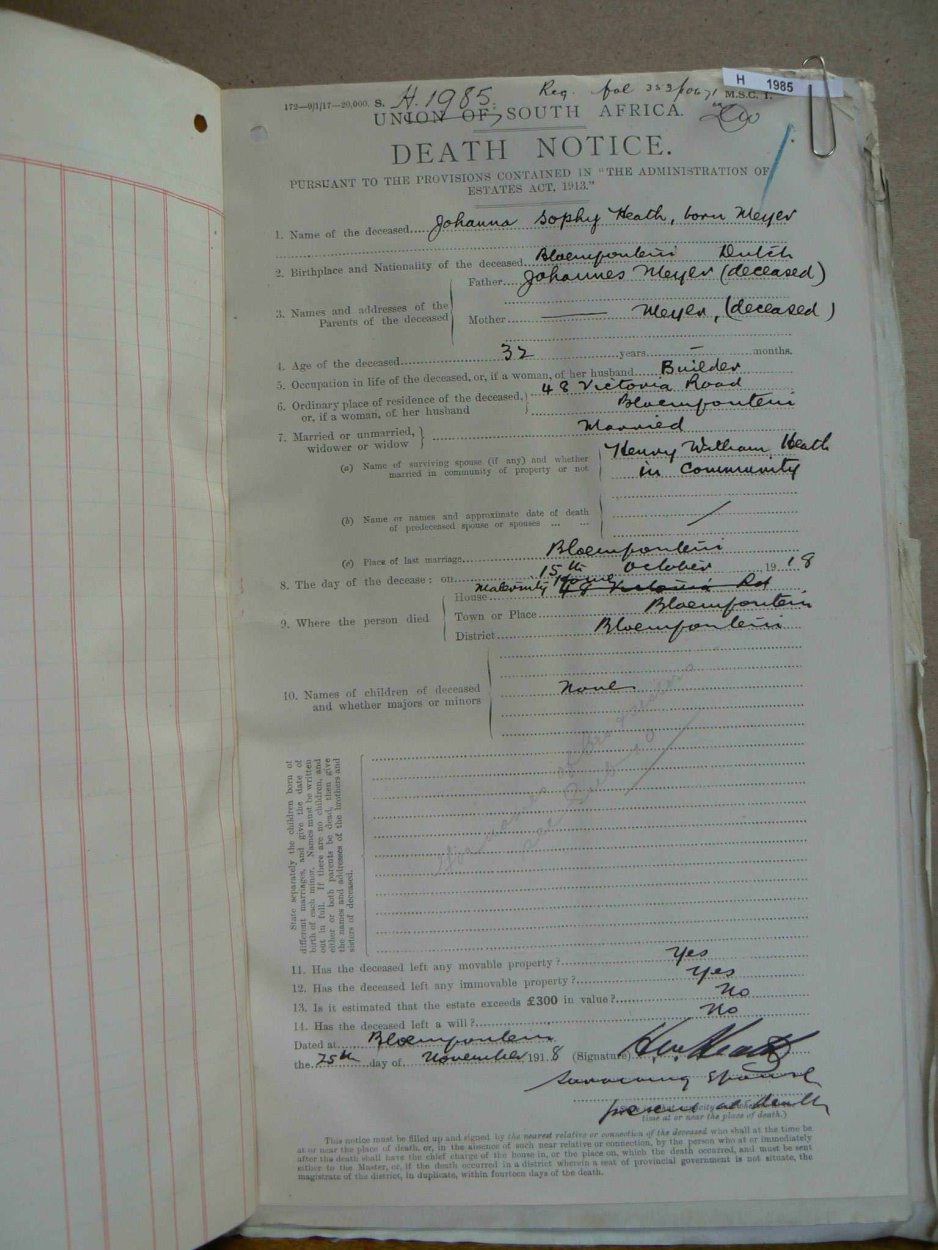 H 1985
172—9/1/17—20,000. S. H. 1985. Reg. fol M.S.C. 1.
UNION OF SOUTH AFRICA.
DEATH NOTICE.
PURSUANT TO THE PROVISIONS CONTAINED IN "THE ADMINISTRATION OF
ESTATES ACT, 1913."
1. Name of the deceased Johanna Sophy Heath, born Meyer
2. Birthplace and Nationality of the deceased Bloemfontein Dutch
3. Names and addresses of the Parents of the deceased
Father Johannes Meyer (deceased)
Mother —— Meyer, (deceased)
4. Age of the deceased 32 years — months.
5. Occupation in life of the deceased, or, if a woman, of her husband Builder
6. Ordinary place of residence of the deceased, 48 Victoria Road
or, if a woman, of her husband Bloemfontein
7. Married or unmarried, widower or widow Married
(a) Name of surviving spouse (if any) and whether Henry William Heath
married in community of property or not in Community
(b) Name or names and approximate date of death
of predeceased spouse or spouses ... ... /
(c) Place of last marriage Bloemfontein
8. The day of the decease: on 15th October 1918
9. Where the person died
House Maternity Home 48 Victoria Rd
Town or Place Bloemfontein
District Bloemfontein
10. Names of children of deceased None
and whether majors or minors
State separately the children born of
different marriages, and give the date of
birth of each minor. Names must be written
out in full. If there are no children, and
either or both parents be dead, then give
the names and addresses of the brothers and
sisters of deceased.
11. Has the deceased left any movable property? Yes
12. Has the deceased left any immovable property? Yes
13. Is it estimated that the estate exceeds £300 in value? No
14. Has the deceased left a will? No
Dated at Bloemfontein
the 25th day of November 1918 (Signature) H W Heath
Surviving Spouse
present at death
time at or near the place of death.)
This notice must be filled up and signed by the nearest relative or connection of the deceased who shall at the time be
at or near the place of death, or, in the absence of such near relative or connection, by the person who at or immediately
after the death shall have the chief charge of the house in, or the place on, which the death occurred, and must be sent
either to the Master, or, if the death occurred in a district wherein a seat of provincial government is not situate, the
magistrate of the district, in duplicate, within fourteen days of the death.